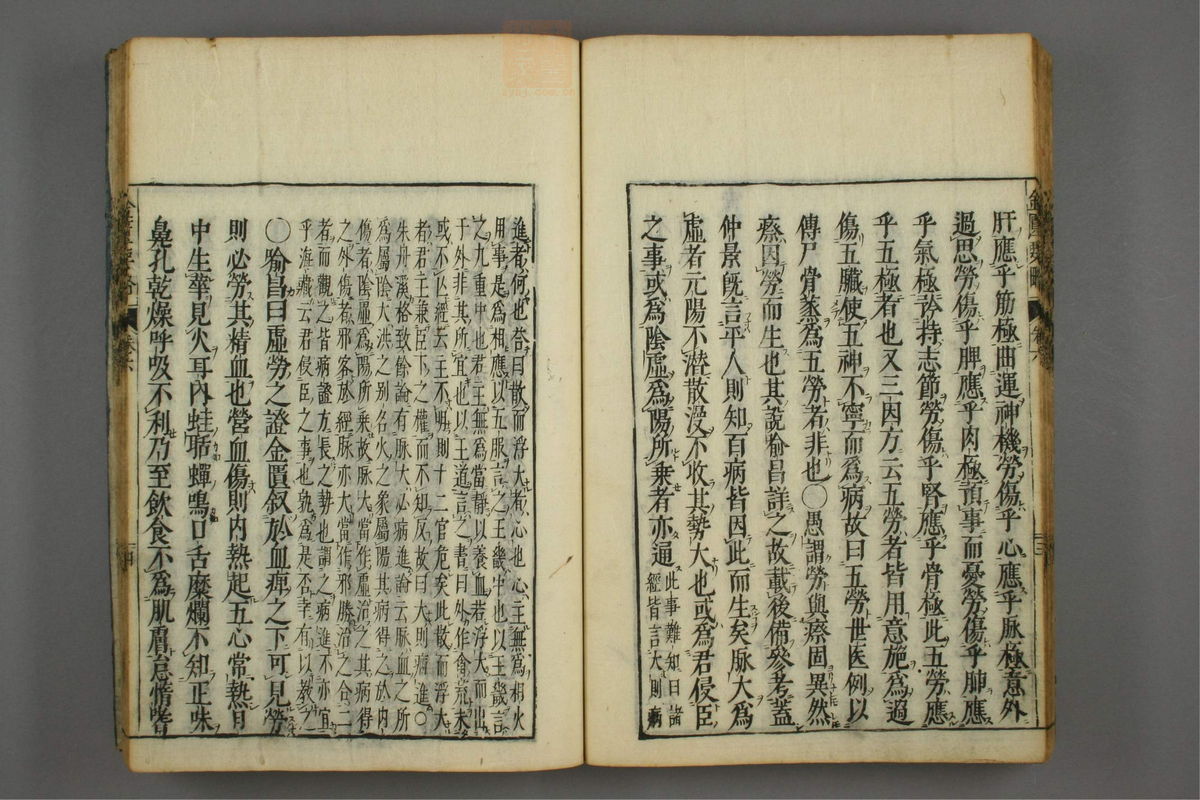 肝應乎筋極曲運神機勞傷乎心應乎脉極意外
過思勞傷乎脾應乎肉極預事而憂勞傷乎肺應
乎氣極矜持志節勞傷乎腎應乎骨極此五勞應
乎五極者也又三因方云五勞者皆用意施爲過
傷五臟使五神不寧而爲病故曰五勞世医例以
傳尸骨蒸爲五勞者非也〇愚謂勞與瘵固異然
瘵因勞而生也其說喻昌詳之故載後備參考蓋
仲景旣言平人則知百病皆因此而生矣脉大爲
虛者元陽不潜散漫不收其勢大也或爲君侵臣
之事或爲陰虛爲陽所乗者亦通 此事難知曰諸
經皆言大則病
進者何也答曰散而浮大者心也心主無爲相火
用事是爲相應以五服言之王畿中也以王畿言
之九重中也君主無爲當靜以養血若浮大而出
于外非其所宜也以王道言之書曰外作禽荒未
或不亾經云主不明則十二官危矣此散而浮大
者君主兼臣下之權而不知反故曰大則病進〇
朱丹溪格致餘論有脉大必病進論云脉血之所
爲屬陰大洪之别名火之象屬陽其病得之於内
傷者陰虛爲陽所乗故脉大當作虛治之其病得
之外傷者邪客於經脉亦大當作邪勝治之合二
者而觀之皆病證方長之勢也謂之病進不亦宜
乎海藏云君侵臣之事也孰爲是否幸有以敎之
〇喻昌曰虛勞之證金匱叙於血痺之下可見勞
則必勞其精血也營血傷則内熱起五心常熱目
中生華見火耳内蛙聒蟬鳴口舌糜爛不知正味
鼻孔乾燥呼吸不利乃至飲食不爲肌膚怠惰嗜